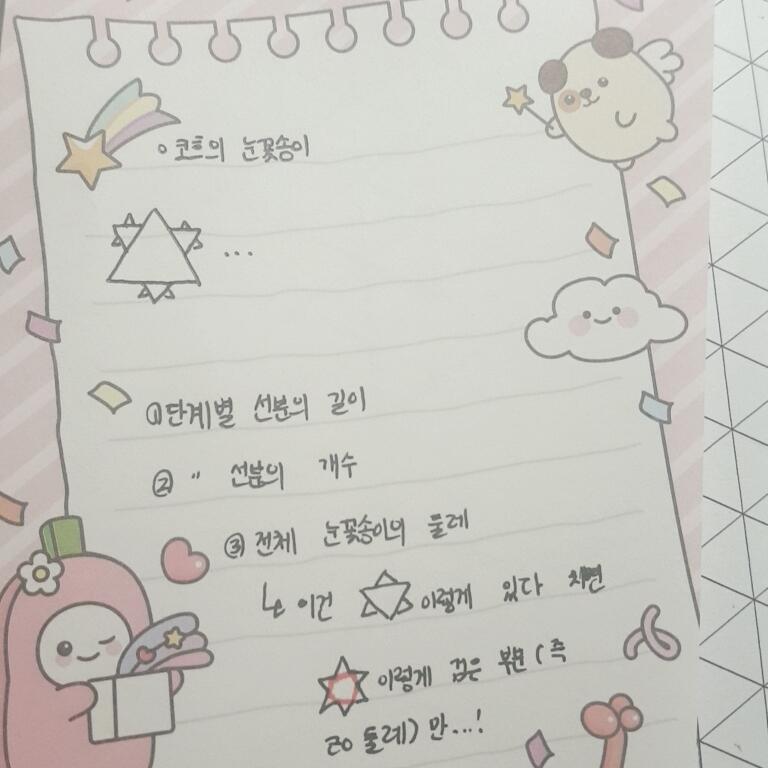 ◦ 코흐의 눈꽃송이
...
① 단계별 선분의 길이
② " 선분의 개수
③ 전체 눈꽃송이의 둘레
↳ 이건 이렇게 있다 치면
이렇게 검은 부분 (즉
둘레) 만...!